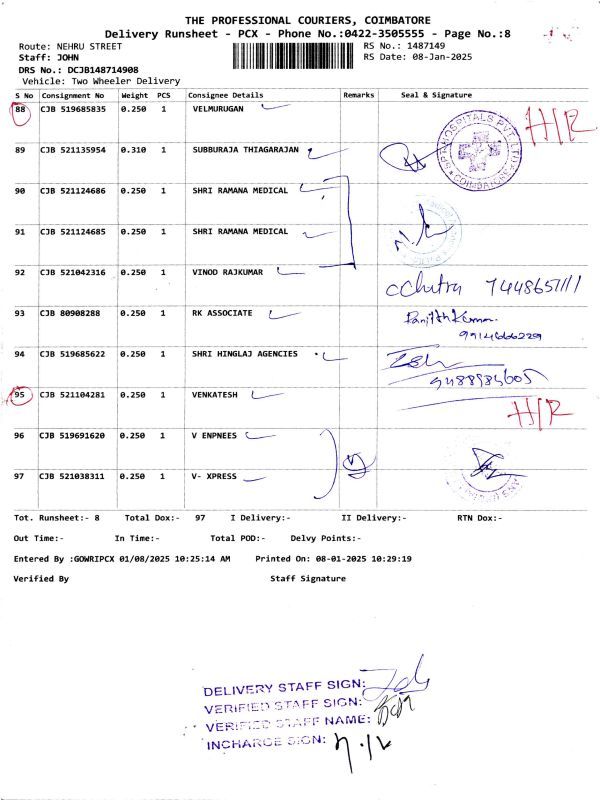 THE PROFESSIONAL COURIERS, COIMBATORE
Delivery Runsheet - PCX - Phone No.:0422-3505555 - Page No.:8
Route: NEHRU STREET RS No.: 1487149
Staff: JOHN RS Date: 08-Jan-2025
DRS No.: DCJB148714908
Vehicle: Two Wheeler Delivery
S No Consignment No Weight PCS Consignee Details Remarks Seal & Signature
88 CJB 519685835 0.250 1 VELMURUGAN H/R
89 CJB 521135954 0.310 1 SUBBURAJA THIAGARAJAN
90 CJB 521124686 0.250 1 SHRI RAMANA MEDICAL
91 CJB 521124685 0.250 1 SHRI RAMANA MEDICAL
92 CJB 521042316 0.250 1 VINOD RAJKUMAR
93 CJB 80908288 0.250 1 RK ASSOCIATE
94 CJB 519685622 0.250 1 SHRI HINGLAJ AGENCIES
95 CJB 521104281 0.250 1 VENKATESH H/R
96 CJB 519691620 0.250 1 V ENPNEES
97 CJB 521038311 0.250 1 V- XPRESS
Tot. Runsheet:- 8 Total Dox:- 97 I Delivery:- II Delivery:- RTN Dox:-
Out Time:- In Time:- Total POD:- Delvy Points:-
Entered By :GOWRIPCX 01/08/2025 10:25:14 AM Printed On: 08-01-2025 10:29:19
Verified By Staff Signature
DELIVERY STAFF SIGN:
VERIFIED STAFF SIGN:
VERIFIED STAFF NAME:
INCHARGE SIGN: